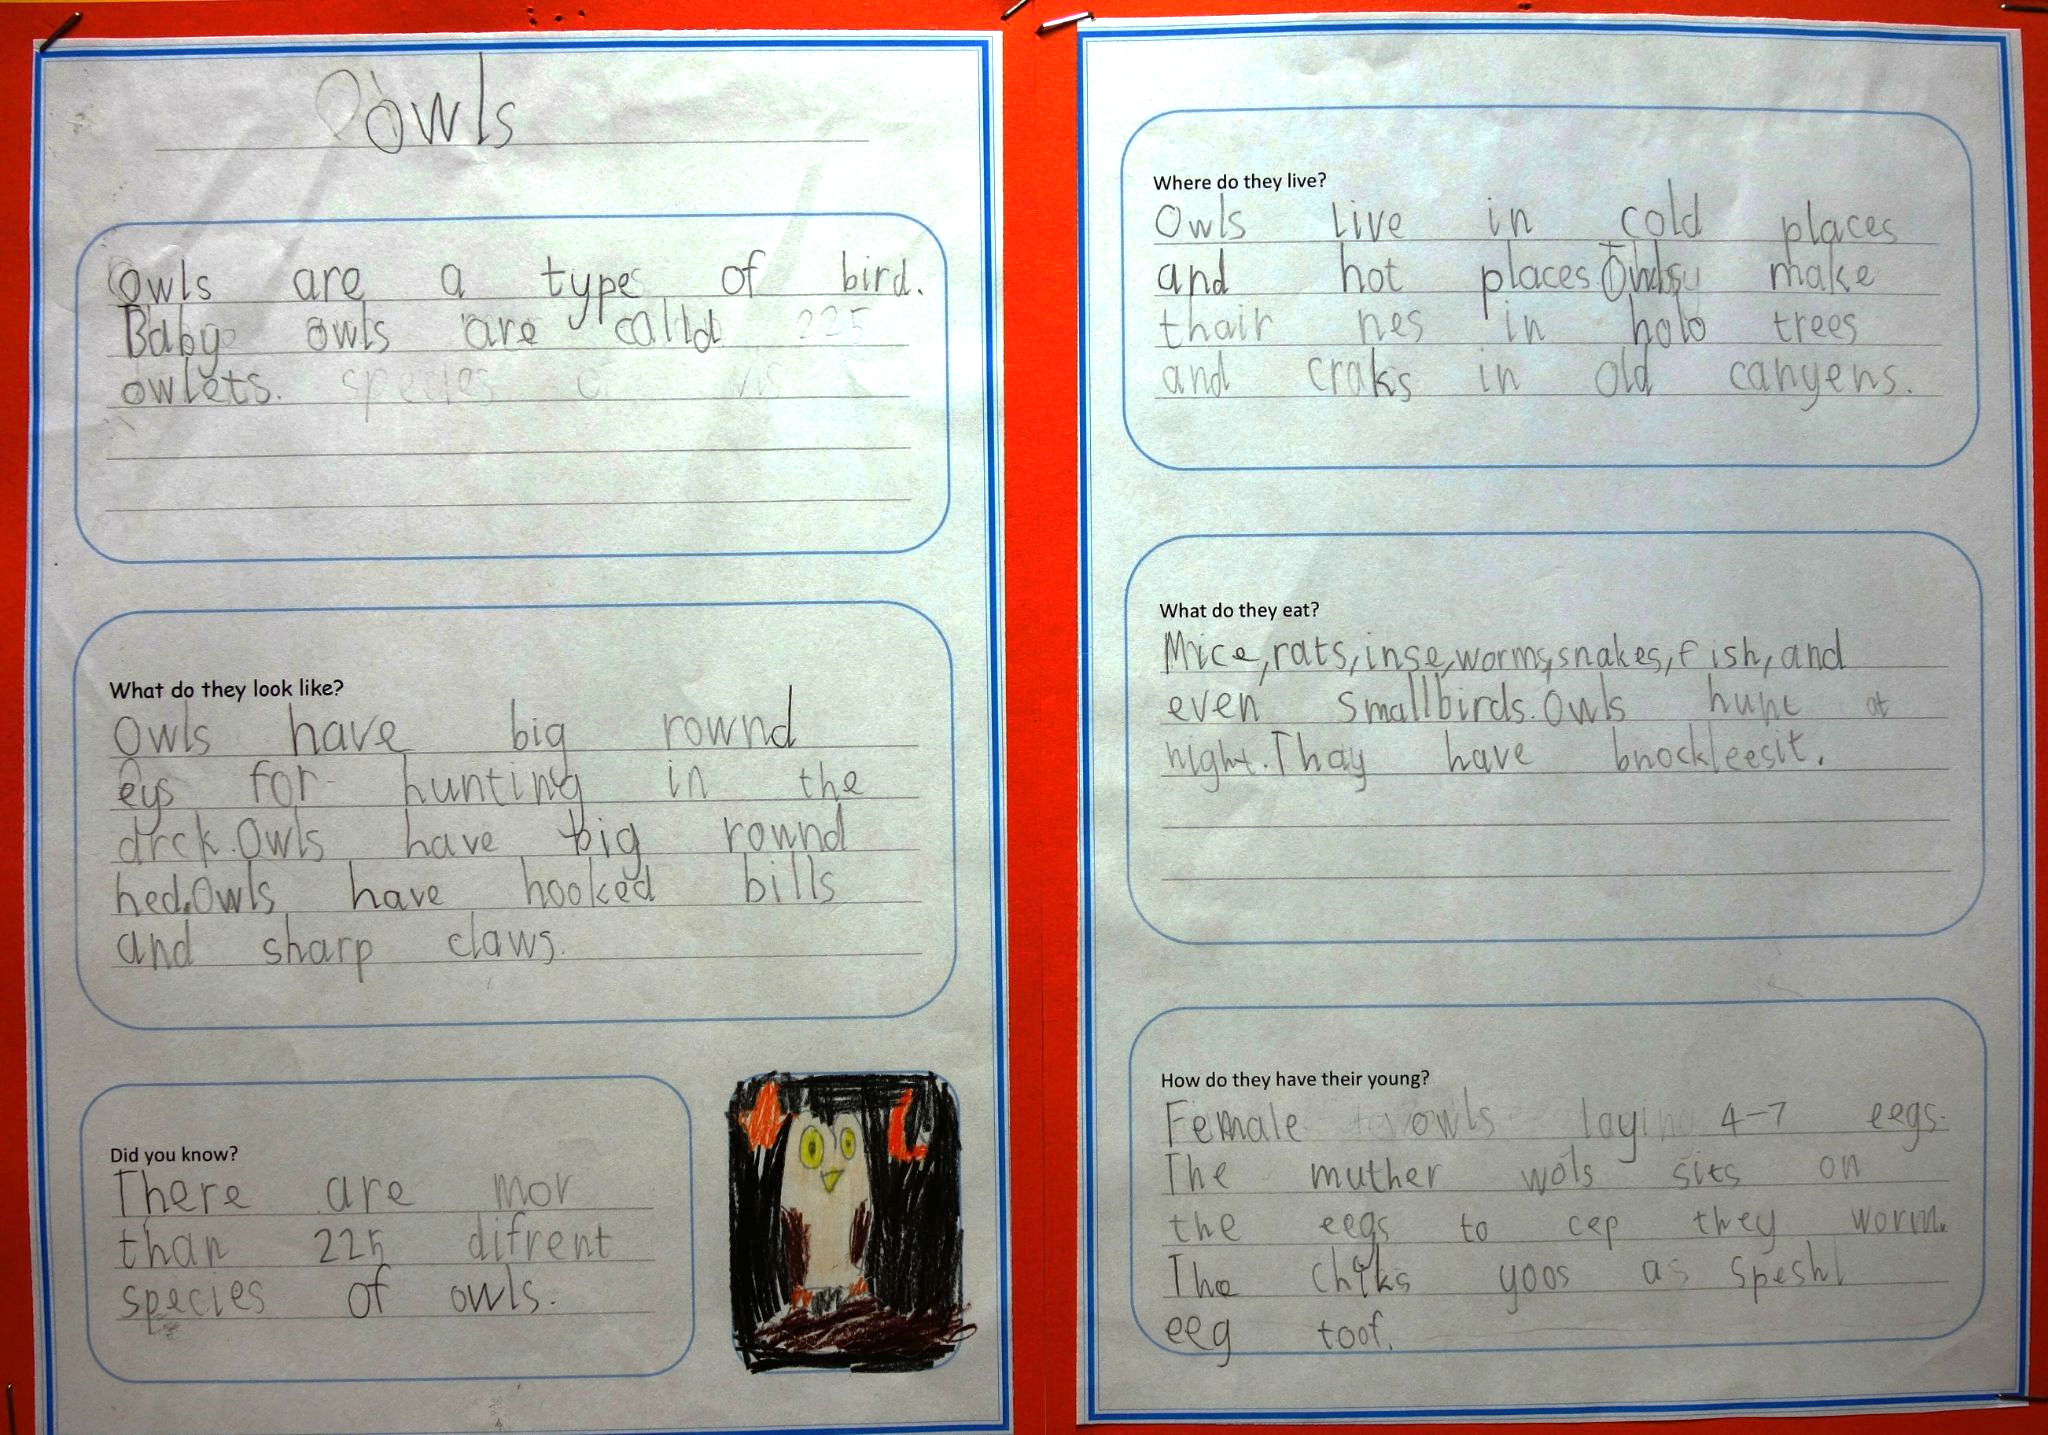 owls
Owls are a type of bird.
Baby owls are calld
owlets.
What do they look like?
Owls have big rownd
eys for hunting in the
drck.Owls have big rownd
hed.Owls have hooked bills
and sharp claws.
Did you know?
There are mor
than 225 difrent
species of owls.
Where do they live?
Owls Live in cold places
and hot places Owls make
thair nes in holo trees
and craks in old canyens.
What do they eat?
Mice,rats,inse,worms,snakes,fish,and
even smallbirds.Owls hunt at
night.Thay have bnockleesit.
How do they have their young?
Female owls lay 4-7 eegs.
The muther wols sits on
the eegs to cep they worm.
The chiks yoos a speshl
eeg toof.